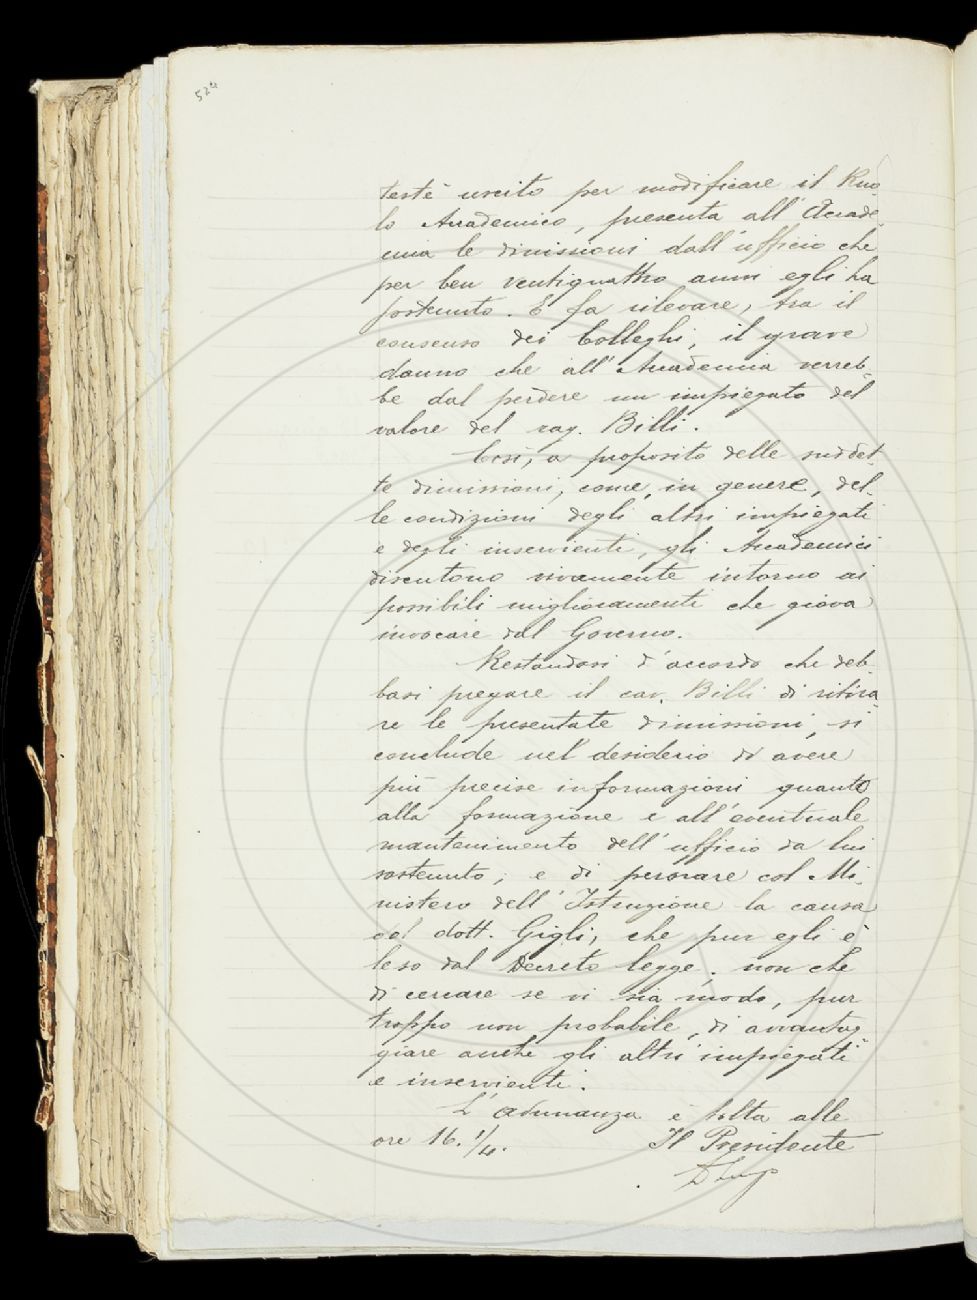 524
testè uscito per modificare il Ruo-
lo Accademico, presenta all'Accade-
mia le dimissioni dall'ufficio che
per ben ventiquattro anni egli ha
sostenuto. E fa rilevare, tra il
consenso dei Colleghi, il grave
danno che all'Accademia verreb-
be dal perdere un impiegato del
valore del rag. Billi.
Così, a proposito delle suddet-
te dimissioni, come, in genere, del-
le condizioni degli altri impiegati
e degli inservienti, gli Accademici
discutono vivamente intorno ai
possibili miglioramenti che giova
invocare dal Governo.
Restandosi d'accordo che deb-
basi pregare il cav. Billi di ritira-
re le presentate dimissioni, si
conclude nel desiderio di avere
più precise informazioni quanto
alla formazione e all'eventuale
mantenimento dell'ufficio da lui
sostenuto; e di perorare col Mi-
nistero dell'Istruzione la causa
del dott. Gigli, che pur egli è
leso dal Decreto legge; non che
di cercare se vi sia modo, pur
troppo non probabile, di avvantag-
giare anche gli altri impiegati
e inservienti.
L'adunanza è tolta alle
ore 16.1/4. Il Presidente